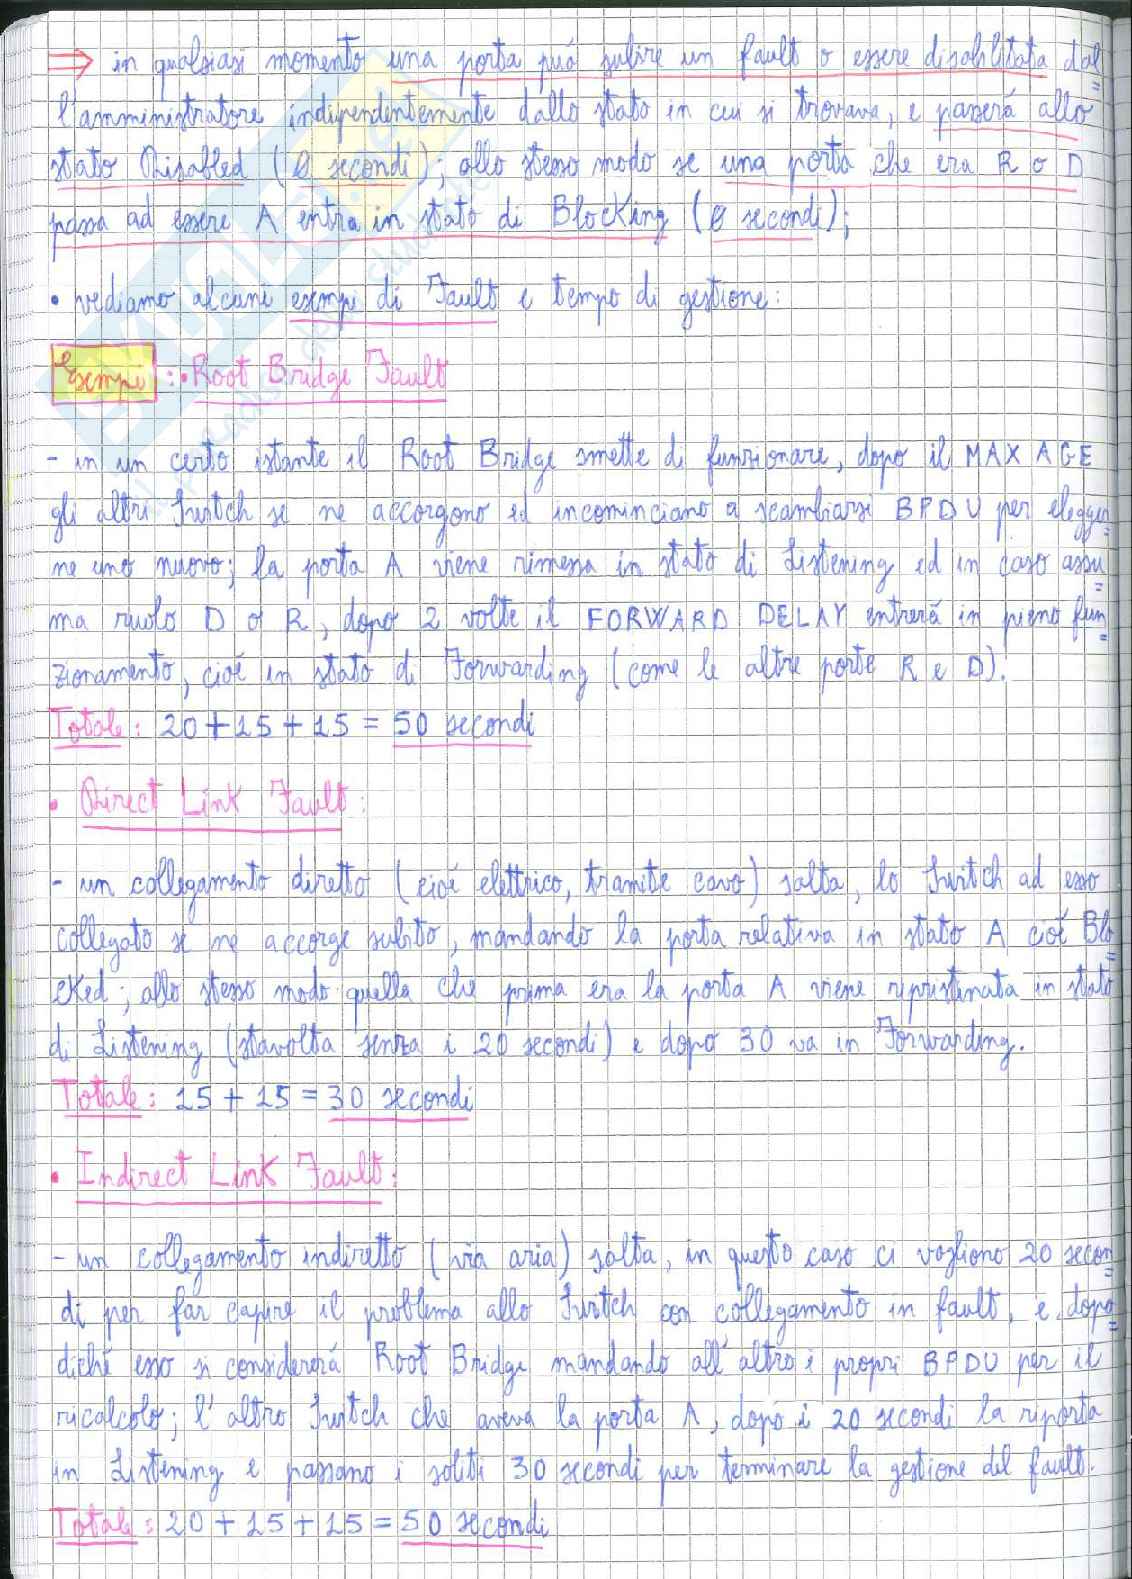 ⇒ in qualsiasi momento una porta può subire un fault o essere disabilitata dal=
l'amministratore indipendentemente dallo stato in cui si trovava, e passerá allo
stato Disabled (0 secondi); allo stesso modo se una porta che era R o D
passa ad essere A entra in stato di Blocking (0 secondi);
• vediamo alcuni esempi di Fault e tempo di gestione:
Esempi: • Root Bridge Fault
- in un certo istante il Root Bridge smette di funzionare, dopo il MAX AGE
gli altri Switch se ne accorgono ed incominciano a scambiarsi BPDU per elegger=
ne uno nuovo; la porta A viene rimessa in stato di Listening ed in caso assu=
ma ruolo D o R, dopo 2 volte il FORWARD DELAY entrerá in pieno fun=
zionamento, cioé in stato di Forwarding (come le altre porte R e D).
Totale: 20+15+15 = 50 secondi
• Direct Link Fault:
- un collegamento diretto (cioé elettrico, tramite cavo) salta, lo Switch ad esso
collegato se ne accorge subito, mandando la porta relativa in stato A cioé Blo=
cked; allo stesso modo quella che prima era la porta A viene ripristinata in stato
di Listening (stavolta senza i 20 secondi) e dopo 30 va in Forwarding.
Totale: 15+15 = 30 secondi
• Indirect Link Fault:
- un collegamento indiretto (via aria) salta, in questo caso ci vogliono 20 secon=
di per far capire il problema allo Switch con collegamento in fault, e dopo=
diché esso si considererá Root Bridge mandando all'altro i propri BPDU per il
ricalcolo; l'altro Switch che aveva la porta A, dopo i 20 secondi la riporta
in Listening e passano i soliti 30 secondi per terminare la gestione del fault.
Totale: 20+15+15 = 50 secondi